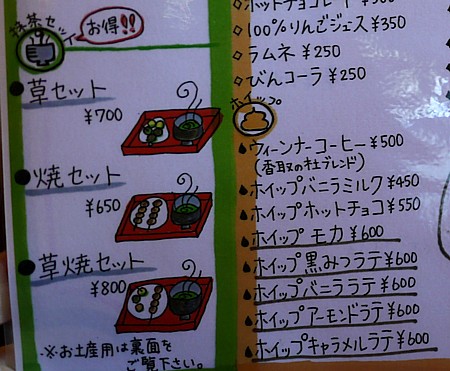 抹茶セット
お得!!
草セット
¥700
焼セット
¥650
草焼セット
¥800
※お土産用は裏面を
ご覧下さい。
◇100%りんごジュース¥350
◇ラムネ ¥250
◇びんコーラ ¥250
ホイップ
ウィーンナーコーヒー¥500
(香取の杜ブレンド)
ホイップバニラミルク¥450
ホイップホットチョコ¥550
ホイップ モカ ¥600
ホイップ黒みつラテ¥600
ホイップバニララテ¥600
ホイップアーモンドラテ¥600
ホイップキャラメルラテ¥600